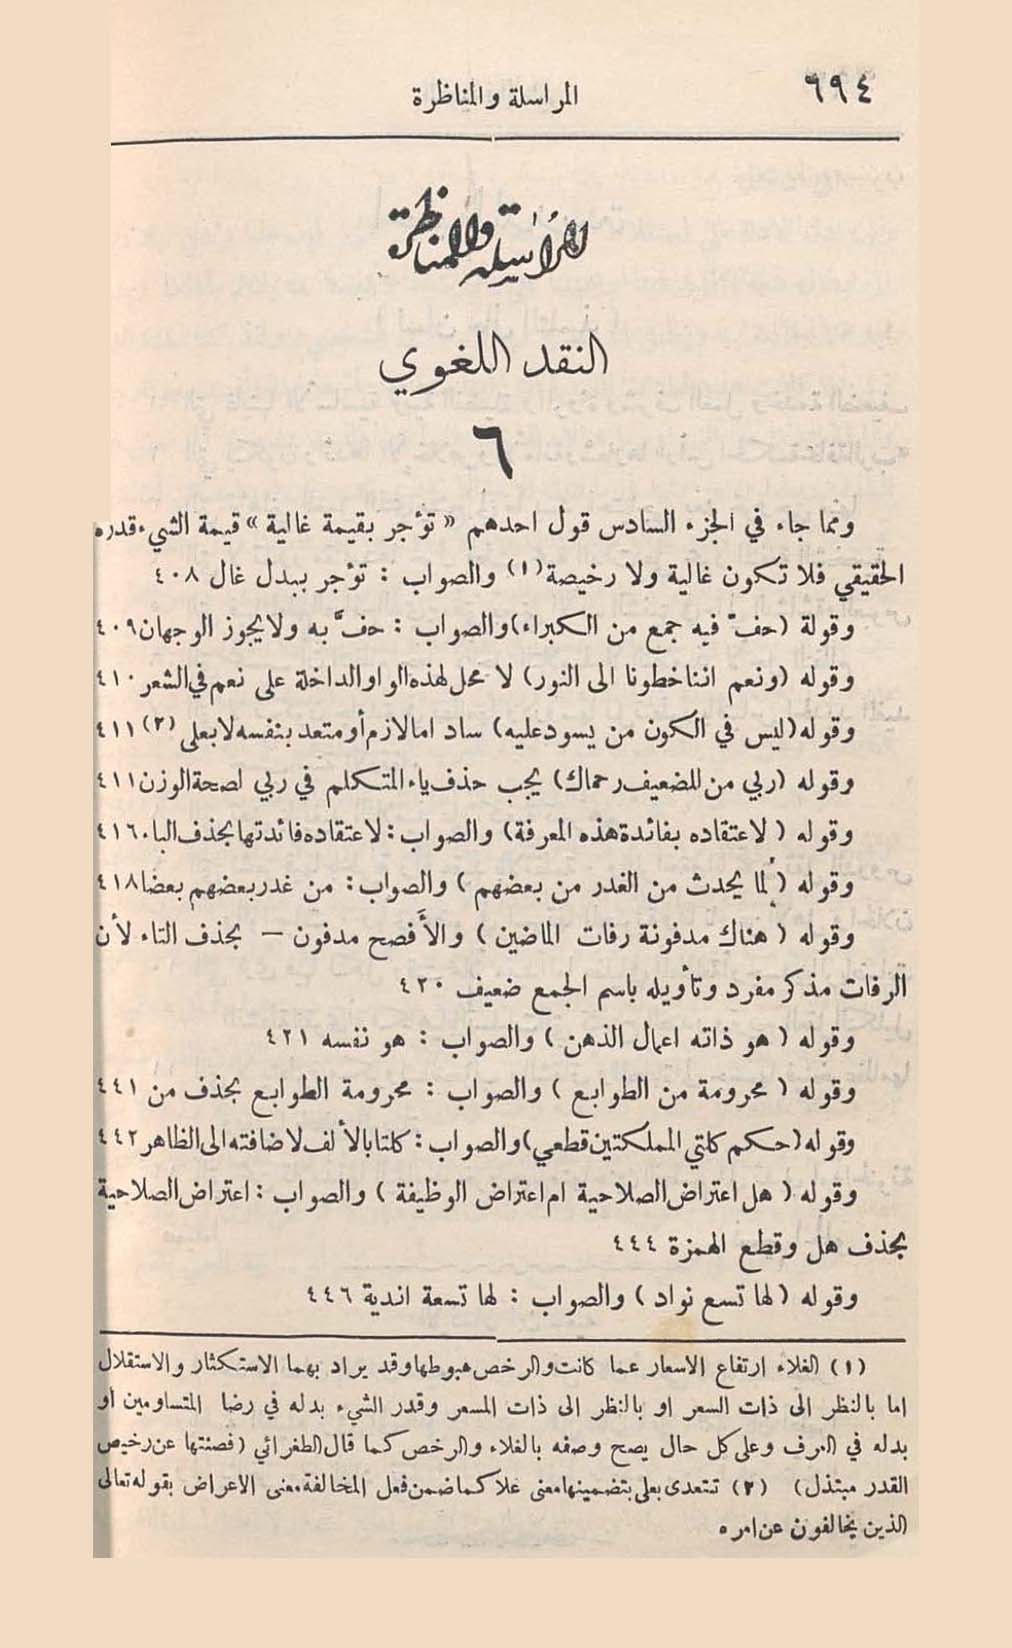 ٦٩٤
المراسلة والمناظرة
المراسلة والمناظرة
النقد اللغوي
٦
ومما جاء في الجزء السادس قول احدهم « تؤجر بقيمة غالية » قيمة الشيء قدره
الحقيقي فلا تكون غالية ولا رخيصة (١) والصواب : تؤجر ببدل غال ٤٠٨
وقولة (حفّ فيه جمع من الكبراء) والصواب : حفَّ به ولا يجوز الوجهان ٤٠٩
وقوله (ونعم اننا خطونا الى النور) لا محل لهذه الواو الداخلة على نعم في الشعر ٤١٠
وقوله (ليس في الكون من يسود عليه) ساد اما لازم أو متعد بنفسه لا بعلى (٢) ٤١١
وقوله (ربي من للضعيف رحماك) يجب حذف ياء المتكلم في ربي لصحة الوزن ٤١١
وقوله ( لاعتقاده بفائدة هذه المعرفة) والصواب : لاعتقاده فائدتها بحذف البا٠ ٤١٦
وقوله ( لما يحدث من الغدر من بعضهم ) والصواب : من غدر بعضهم بعضا ٤١٨
وقوله ( هناك مدفونة رفات الماضين ) والأفصح مدفون — بحذف التاء لأن
الرفات مذكر مفرد وتأويله باسم الجمع ضعيف ٤٢٠
وقوله ( هو ذاته اعمال الذهن ) والصواب : هو نفسه ٤٢١
وقوله ( محرومة من الطوابع ) والصواب : محرومة الطوابع بحذف من ٤٤١
وقوله (حكم كلتي المملكتين قطعي) والصواب : كلتا بالألف لاضافته الى الظاهر ٤٤٢
وقوله ( هل اعتراض الصلاحية ام اعتراض الوظيفة ) والصواب : اعتراض الصلاحية
بحذف هل وقطع الهمزة ٤٤٤
وقوله ( لها تسع نواد ) والصواب : لها تسعة اندية ٤٤٦
(١) الغلاء ارتفاع الاسعار عما كانت والرخص هبوطها وقد يراد بهما الاستكثار والاستقلال
اما بالنظر الى ذات السعر او بالنظر الى ذات المسعر وقدر الشيء بدله في رضا المتساومين او
بدله في العرف وعلى كل حال يصح وصفه بالغلاء والرخص كما قال الطغرائي (فصنتها عن رخيص
القدر مبتذل) (٢) تتعدى بعلى بتضمينها معنى علا كما ضمن فعل المخالفة معنى الاعراض بقوله تعالى
الذين يخالفون عن امره